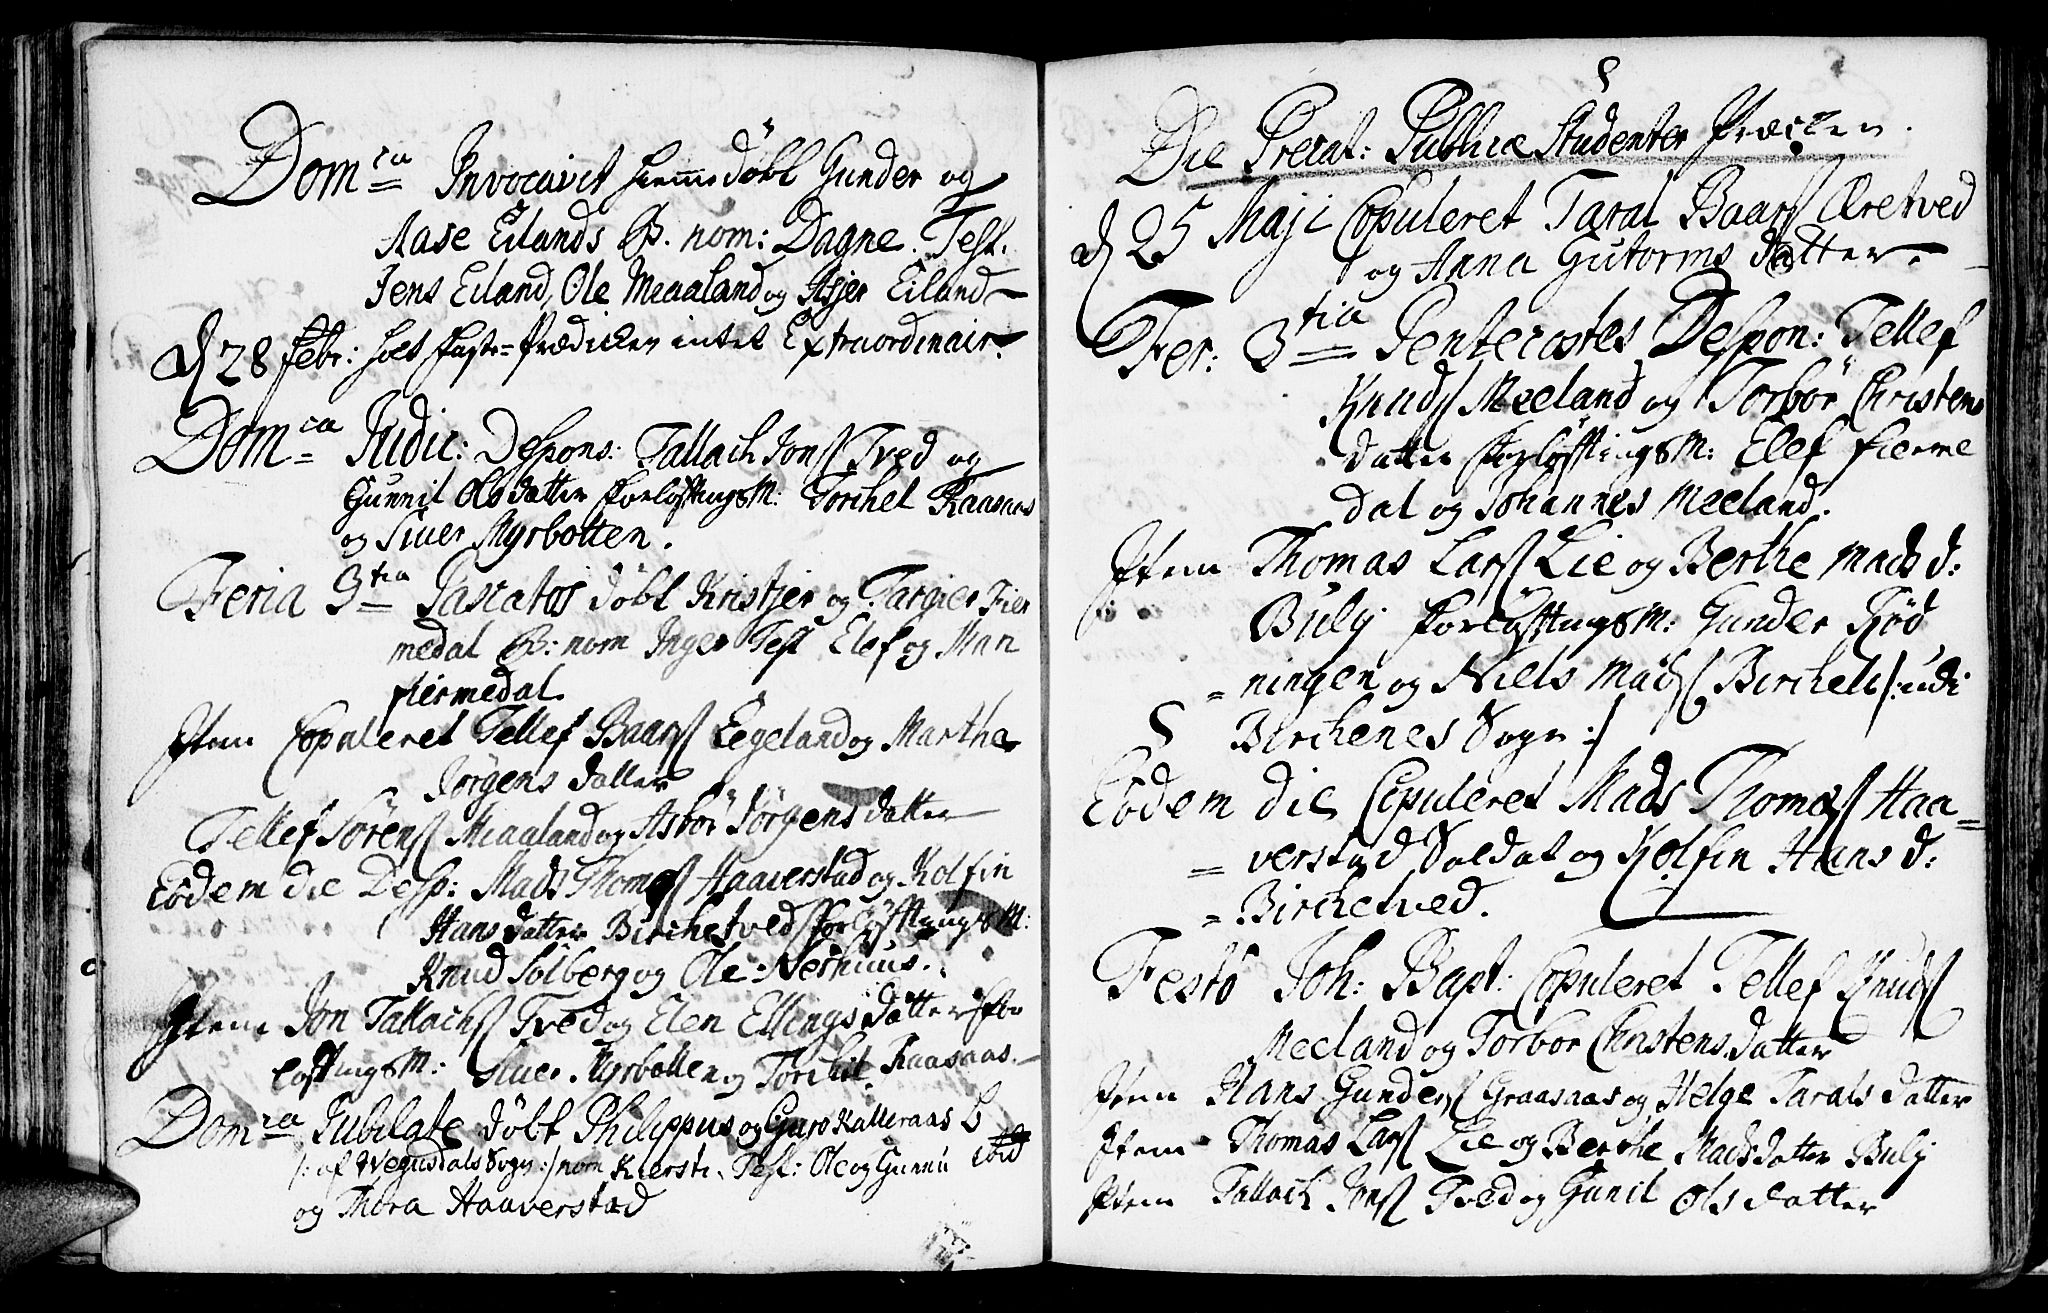 Dom ca Invocavit Hiemmedøbt Gunder og
Aase Eilands B. nom: Dagne. Test.
Jens Eiland, Ole Meaaland og Asjer Eiland
d 28 Febr: holt Faste-Prædicken intet Extraordinair.
Dom ca Judic: Despons: Tallach Jons Tved og
Gunnil Olsdatter Forløftings M: Torchel Kaasaas
og Siuer Myrbotten.
Feria 3 tia Pascatos døbt Kristjer og Targier Fier
medal B: nom Inger Test Elef og Man
fiermedal.
Item Copuleret Tellef Baars Egeland og Marthe
Jørgens datter
Tellef Sørens Meaaland og Asbør Jørgens datter
Eodem die Desp: Mads Thomes Haaverstad og Kolfin
Hans datter Birchetved Forløfftnings M:
Knud Solberg og Ole Nerhuus.
Item Jon Tallachs Tved og Elen Ellings datter For
løftings M: Siuer Myrbotten og Torchil Kaasaas.
Dom ca Jubilate døbt Philippus og Guro Kalleraas B
/: af Wegusdals Sogn :/ nom Kiersti. Test: Ole og Gunnil ibid
og Thora Haaverstad
Die Precat: Publicæ Studenter Præcken.
d 25 Maji Copuleret Taral Baars Æretved
og Anna Gutorms datter
Fer: 3 tia Pentecostes Despon: Tellef
Knuds Meeland og Torbør Christens
datter Forløfftings M: Elef fierme
dal og Johannes Meeland.
Item Thomas Lars Lie og Berthe Mads d:
Buly Forløfftings M: Gunder Rød
=ningen og Niels Mads Bircheli /: udi
Birchenes Sogn :/
Eodem die Copuleret Mads Thomes Haa=
=verstad Soldat og Kolfin Hans d:
=Birchetved.
Festo Joh: Bapt: Copuleret Tellef Knuds
Meeland og Torbor Christens datter
Item Hans Gunders Graasaas og Helge Tarals datter
Item Thomas Lars Lie og Berthe Madsdatter Buly
Item Tallach Jons Tved og Gunil Ols datter